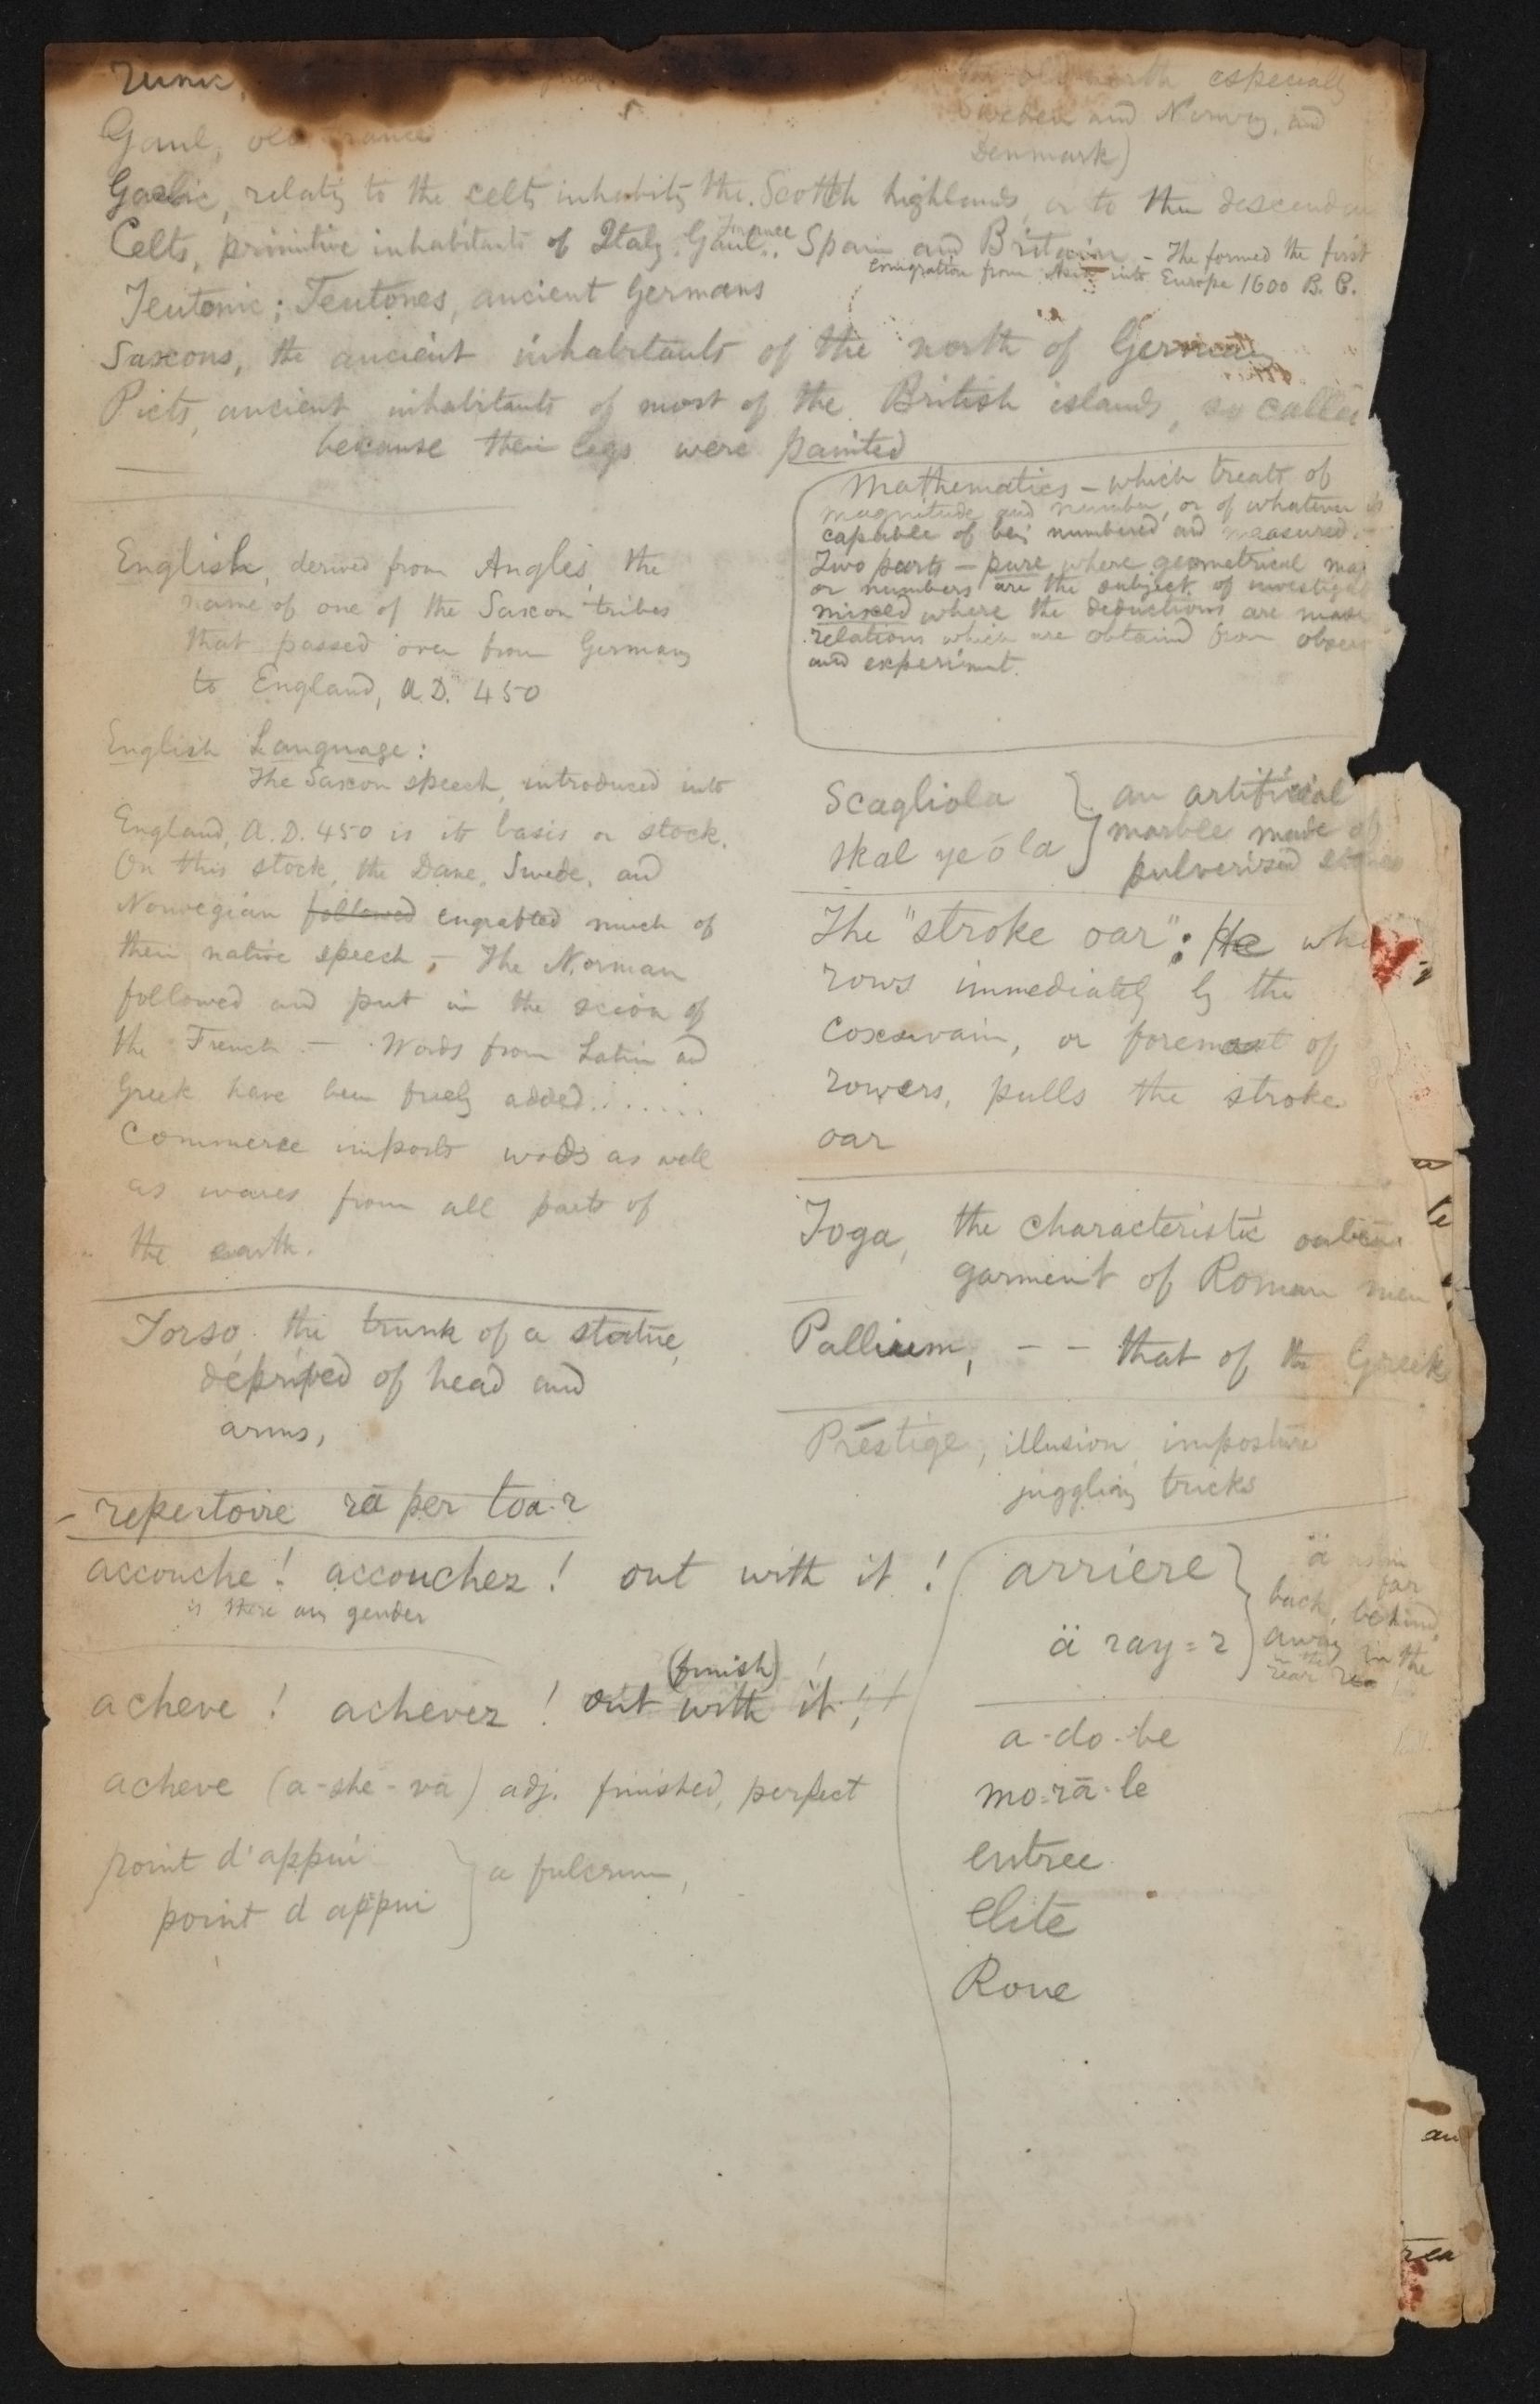 Runic,
the old north especially
Sweden and Norway, and
Denmark)
Gaul, old France
Gaelic, relatig to the celts inhabitig the Scottch highlands, or to their descendan
Celts, primitive inhabitants of Italy. Gaul. France Spain and Britain – The formed the first
emigration from Asia into Europe 1600 B. C.
Teutonic; Teutones, ancient Germans
Saxons, the ancient inhabitants of the north of Germany
Picts, ancient inhabitants of most of the British islands, so called
because their legs were painted
English, derived from Angles, the
name of one of the Saxon tribes
that passed over from Germany
to England, A.D. 450
English Language:
The Saxon speech, introduced into
England, A.D. 450 is its basis or stock.
On this stock, the Dane, Swede, and
Norwegian followed engrafted much of
their native speech, – The Norman
followed and put in the scion of
the French – Words from Latin and
Greek have been freely added.......
Commerce imports words as well
as wares from all parts of
the earth.
Torso, the trunk of a statue,
deprived of head and
arms,
– repertoire rā per toa-r
accouche! accouchez! out with it!
is there any gender
(finish)
acheve! achevez! out with it!
acheve (a-she-vā) adj. finished, perfect
point d'appui
point d appui } a fulcrum,
Mathematics – which treats of
magnitude and number, or of whatever is
capable of beig numbered and measured. –
Two parts – pure where geometrical mag
or numbers are the subject of investigat
mixed where the deductions are made
relations which are obtained from obser
and experiment.
Scagliola } an artificial
skal ye ō la } marble made of
pulverised stones
The "stroke oar": He who
rows immediately by the
coxswain, or foremost of
rowers, pulls the stroke
oar
Toga, the characteristic outer
garment of Roman men
Pallium, – – that of the Greek
Prestige, illusion imposture
juggling tricks
arriere }
ä ray=r }
ä as in
far
back, behind,
away in the
rear
a-do-be
mo-rā-le
entree
Elite
Roue
an